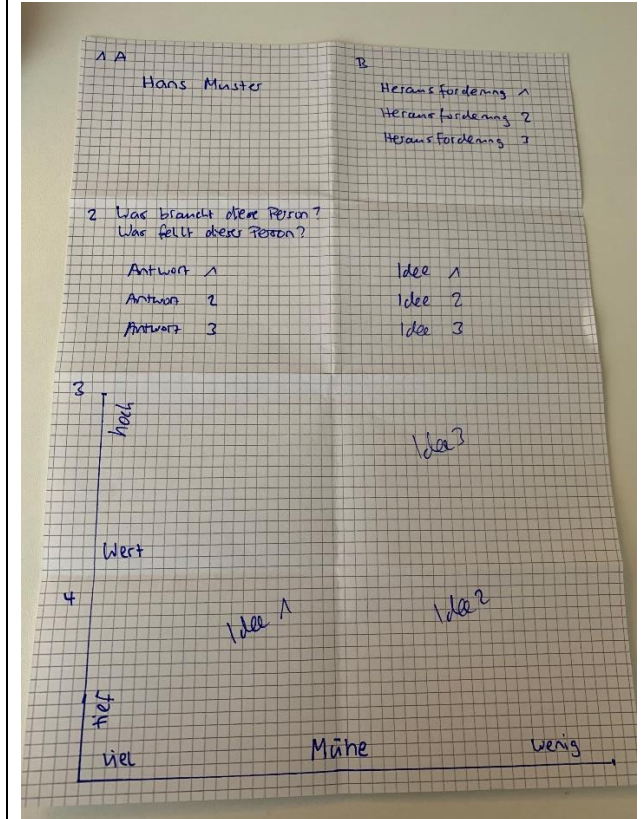 1 A
B
Hans Muster
Herausforderung 1
Herausforderung 2
Herausforderung 3
2 Was braucht diese Person?
Was fehlt dieser Person?
Antwort 1
Antwort 2
Antwort 3
Idee 1
Idee 2
Idee 3
3
hoch
Idee 3
Wert
4
Idee 1
Idee 2
tief
viel
Mühe
wenig